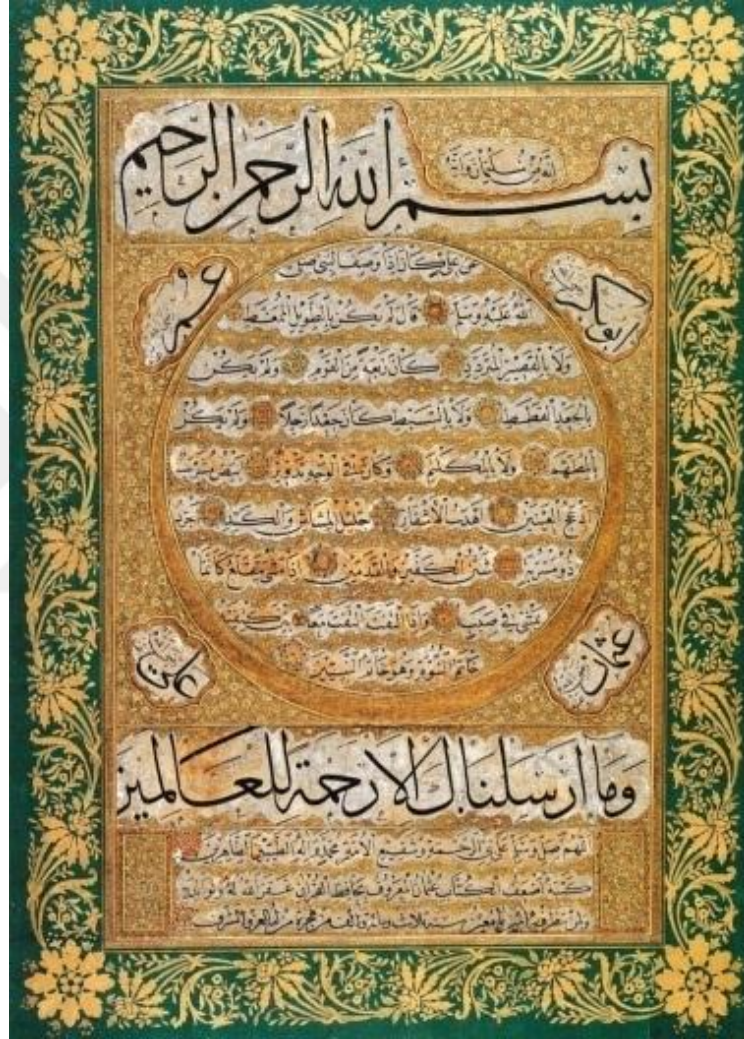 إنه من سليمان وإنه
بسم الله الرحمن الرحيم
عن علي كان إذا وصف النبي صلى
أبوبكر
عمر
الله عليه وسلم قال لم يكن بالطويل الممغط
ولا بالقصير المتردد كان ربعة من القوم ولم يكن
بالجعد القطط ولا بالسبط كان جعدا رجلا ولم يكن
بالمطهم ولا بالمكلثم وكان في الوجه تدوير أبيض مشرب
أدعج العينين أهدب الأشفار جليل المشاش والكتد أجرد
ذو مسربة شثن الكفين والقدمين إذا مشى يتقلع كأنما
يمشي في صبب وإذا التفت التفت معا بين كتفيه
خاتم النبوة وهو خاتم النبيين
عثمان
علي
وما أرسلناك إلا رحمة للعالمين
اللهم صل وسلم على نبي الرحمة وشفيع الأمة محمد وآله الطيبين الطاهرين
كتبه أضعف الكتاب عثمان المعروف بحافظ القرآن غفر الله له
سنة ثلاث ومائة وألف من هجرة من له العز والشرف